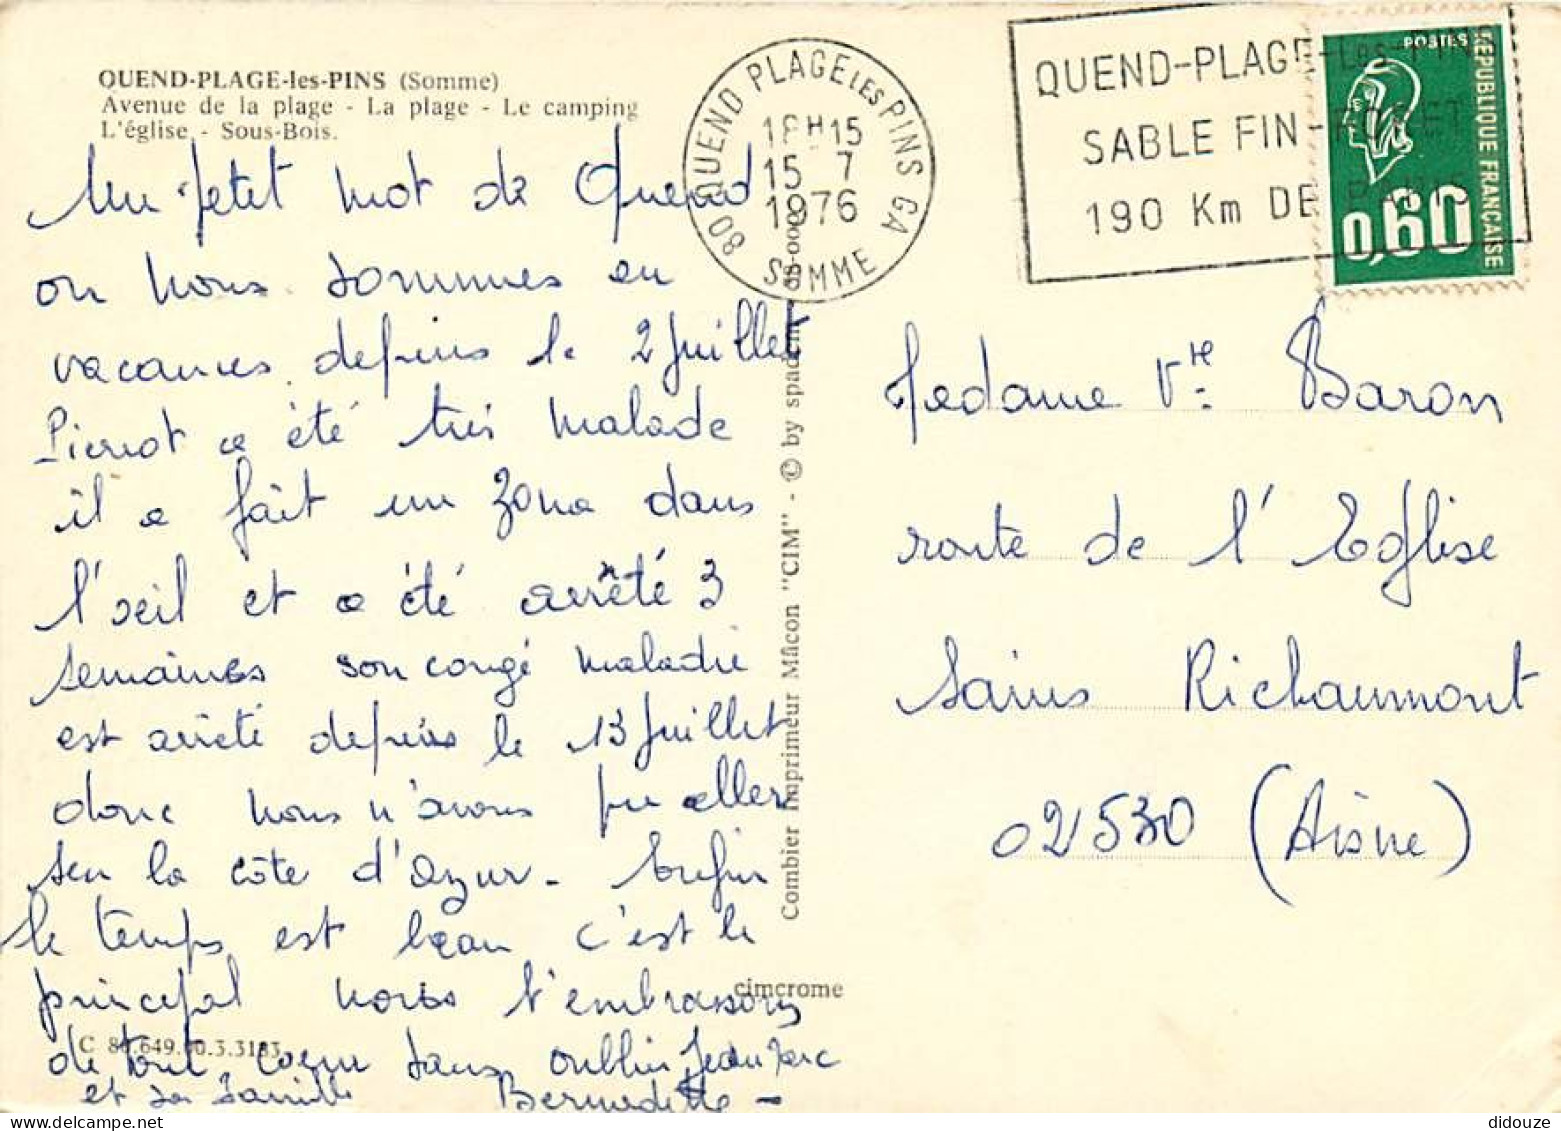 QUEND-PLAGE-les-PINS (Somme)
Avenue de la plage - La plage - Le camping
L'église - Sous-Bois.
Un petit mot de Quend
où nous sommes en
vacances depuis le 2 juillet
Pierrot a été très malade
il a fait un zona dans
l'oeil et a été arrêté 3
semaines son congé maladie
est arrêté depuis le 13 juillet
donc nous n'avons pu aller
sur la côte d'azur - Enfin
le temps est beau c'est le
principal nous t'embrassons
de tout coeur sans oublier Jean Marc
et sa famille Bernadette -
C 80.649.00.3.3183
80 QUEND PLAGE LES PINS GA
18H15
15 7
1976
SOMME
Combier Imprimeur Mâcon "CIM" - © by spadem
cimcrome
QUEND-PLAGE-Les-PINS
SABLE FIN -
190 Km DE PARIS
POSTES
REPUBLIQUE FRANÇAISE
0,60
Madame Vve Baron
route de l'Eglise
Sains Richaumont
02530 (Aisne)
didouze